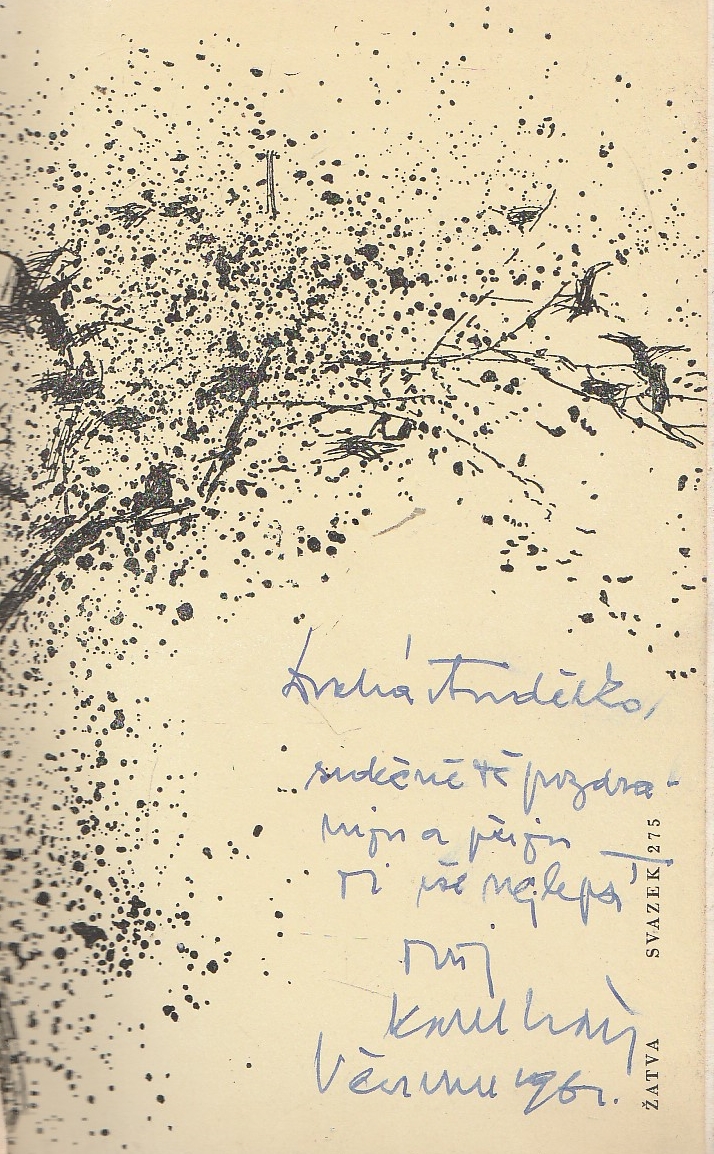 Drahá Andělko,
srdečně tě pozdra-
vuju a přeju
ti vše nejlepší
Tvůj
Karel
V červnu 1961.
ŽATVA SVAZEK 275